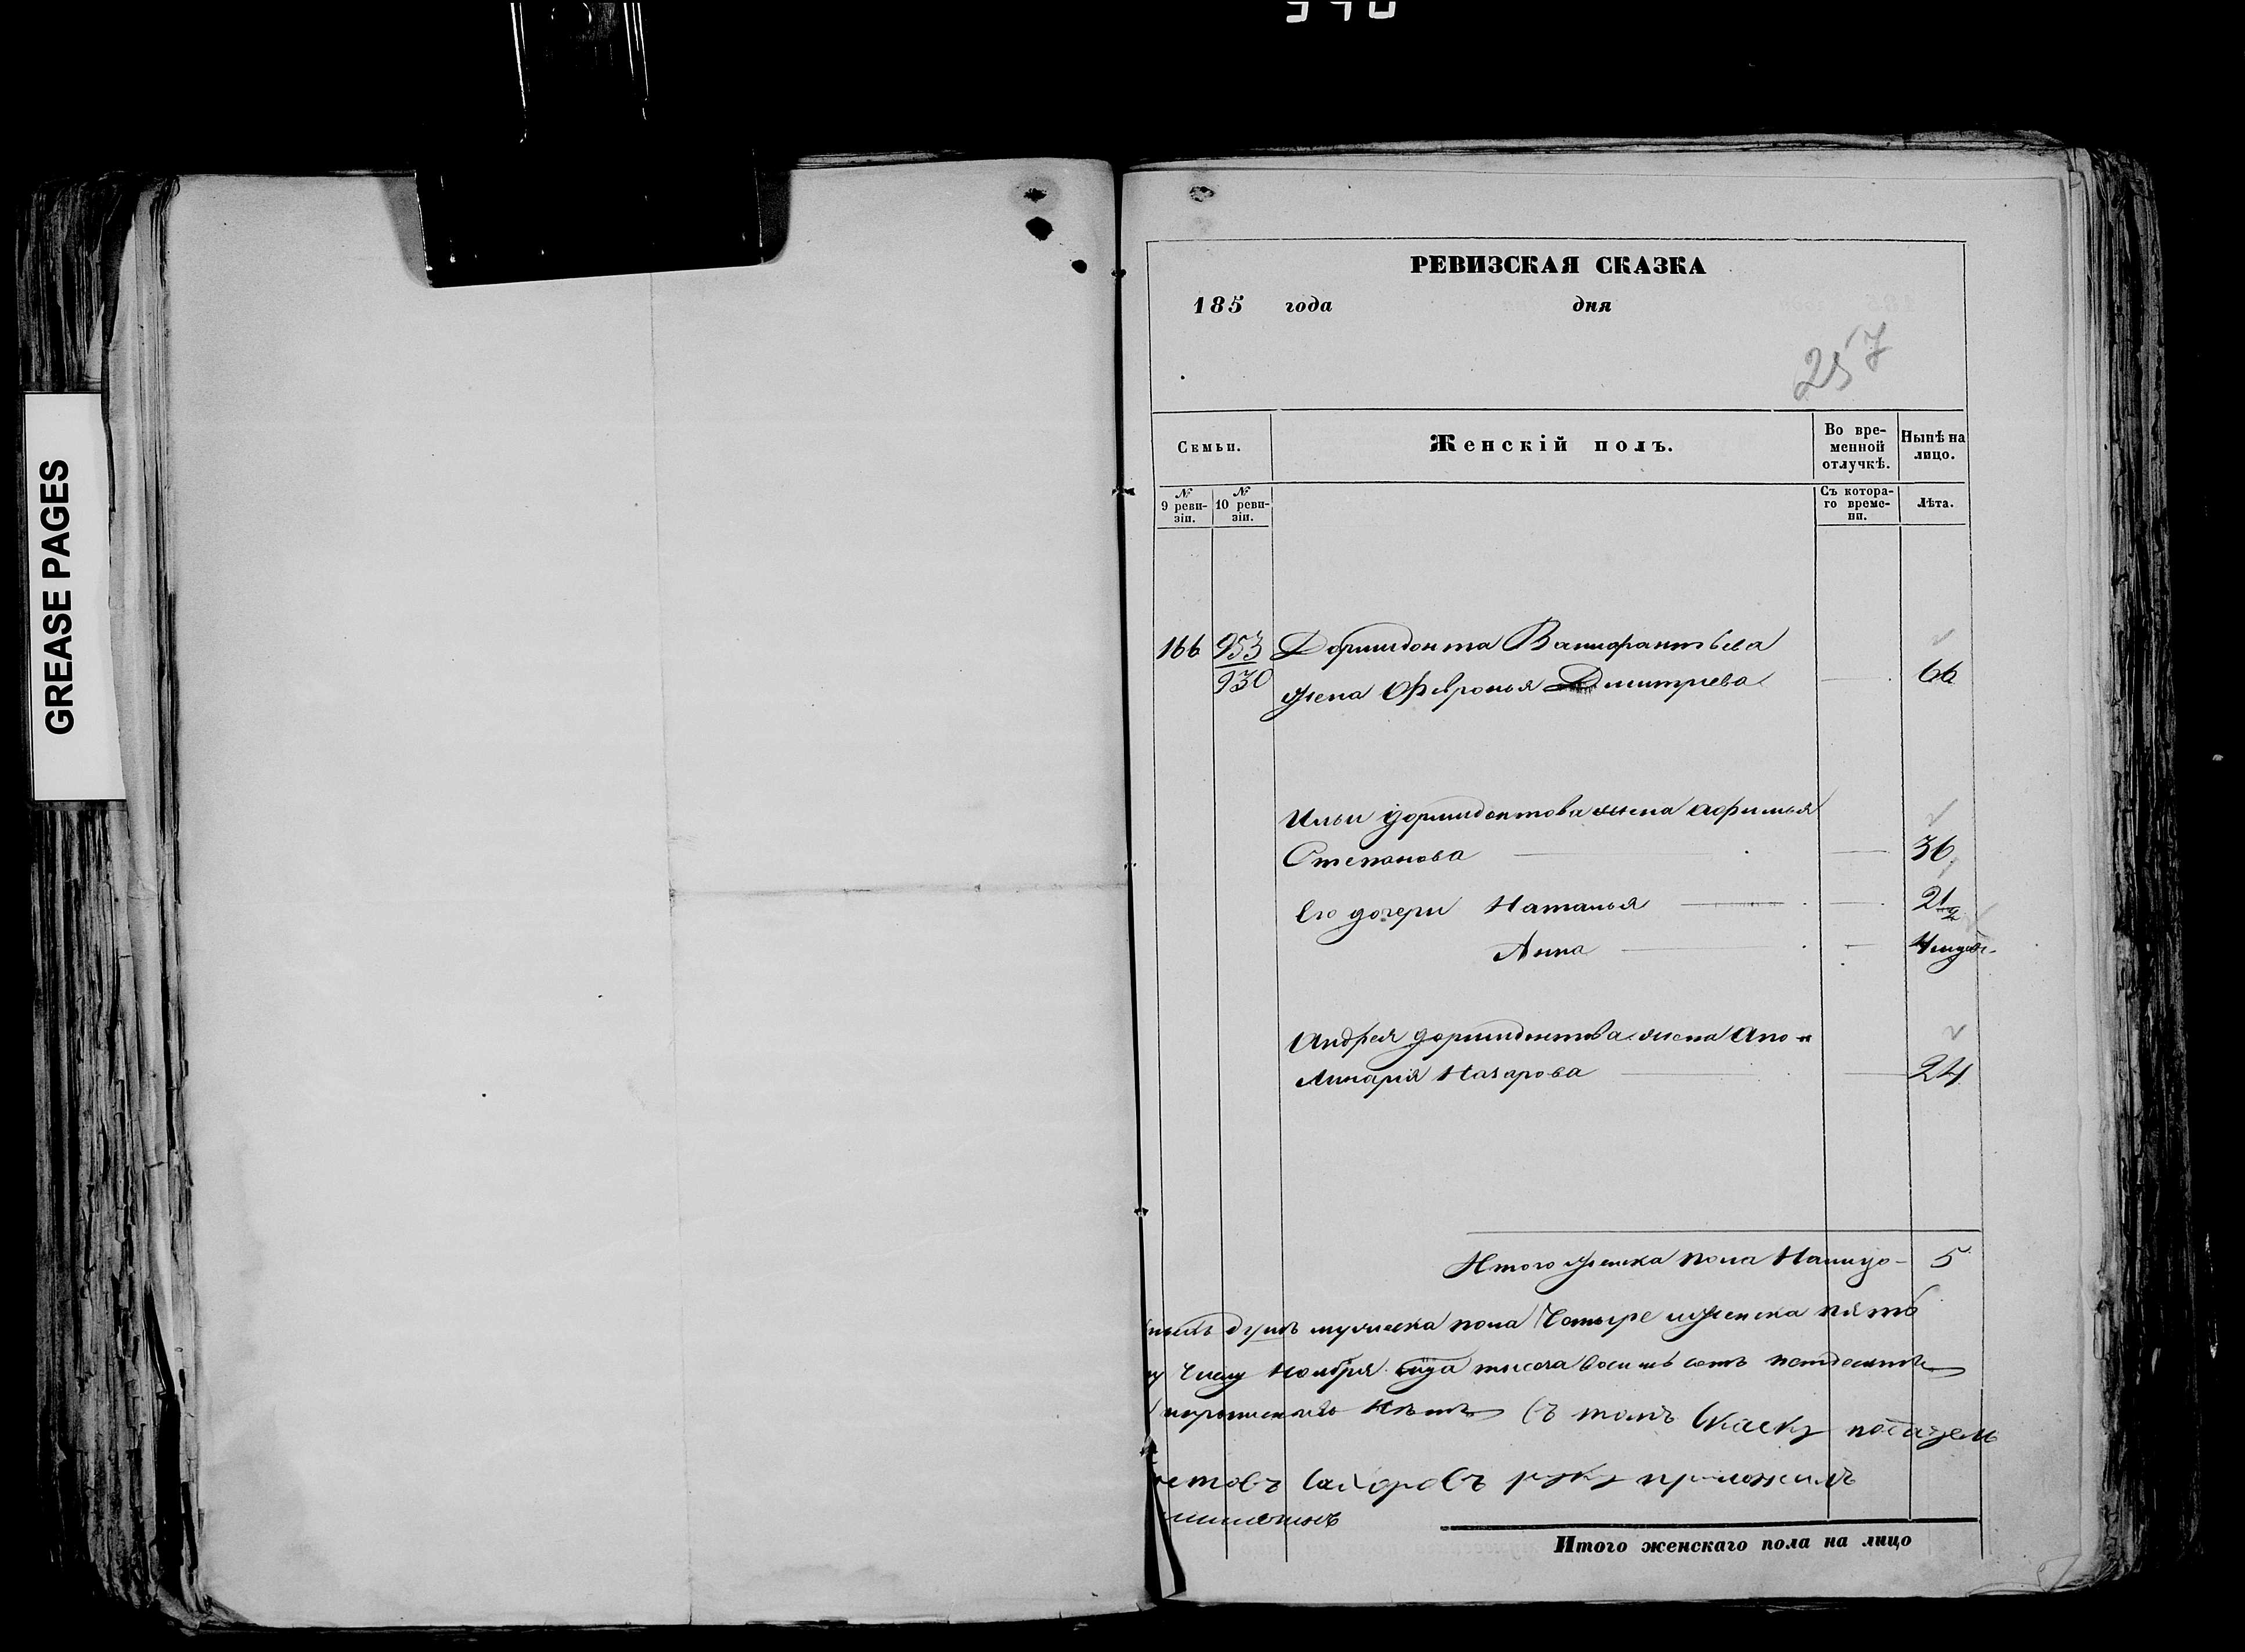 GREASE PAGES
РЕВИЗСКАЯ СКАЗКА
185 года дня
257
Семьи.
Женскій полъ.
Во вре-
менной
отлучкѣ.
Нынѣ на
лицо.
№
9 реви-
зіи.
№
10 реви-
зіи.
Съ котора-
го време-
ни.
Лѣта.
166 953 Дормидонта
930 жена Февронья Дмитриева 66
Ильи дормидонтова жена Афимья
Степанова 36
Его дочери Наталья 2 1/2
Анна
Андрея дормидонтова жена Апо-
линария Назарова 24
Итого женска пола Налицо 5
душъ мужеска пола Четыре женска пять
числу Ноября года тысяча восемь сотъ
нѣтъ
руку приложилъ
Итого женскаго пола на лицо